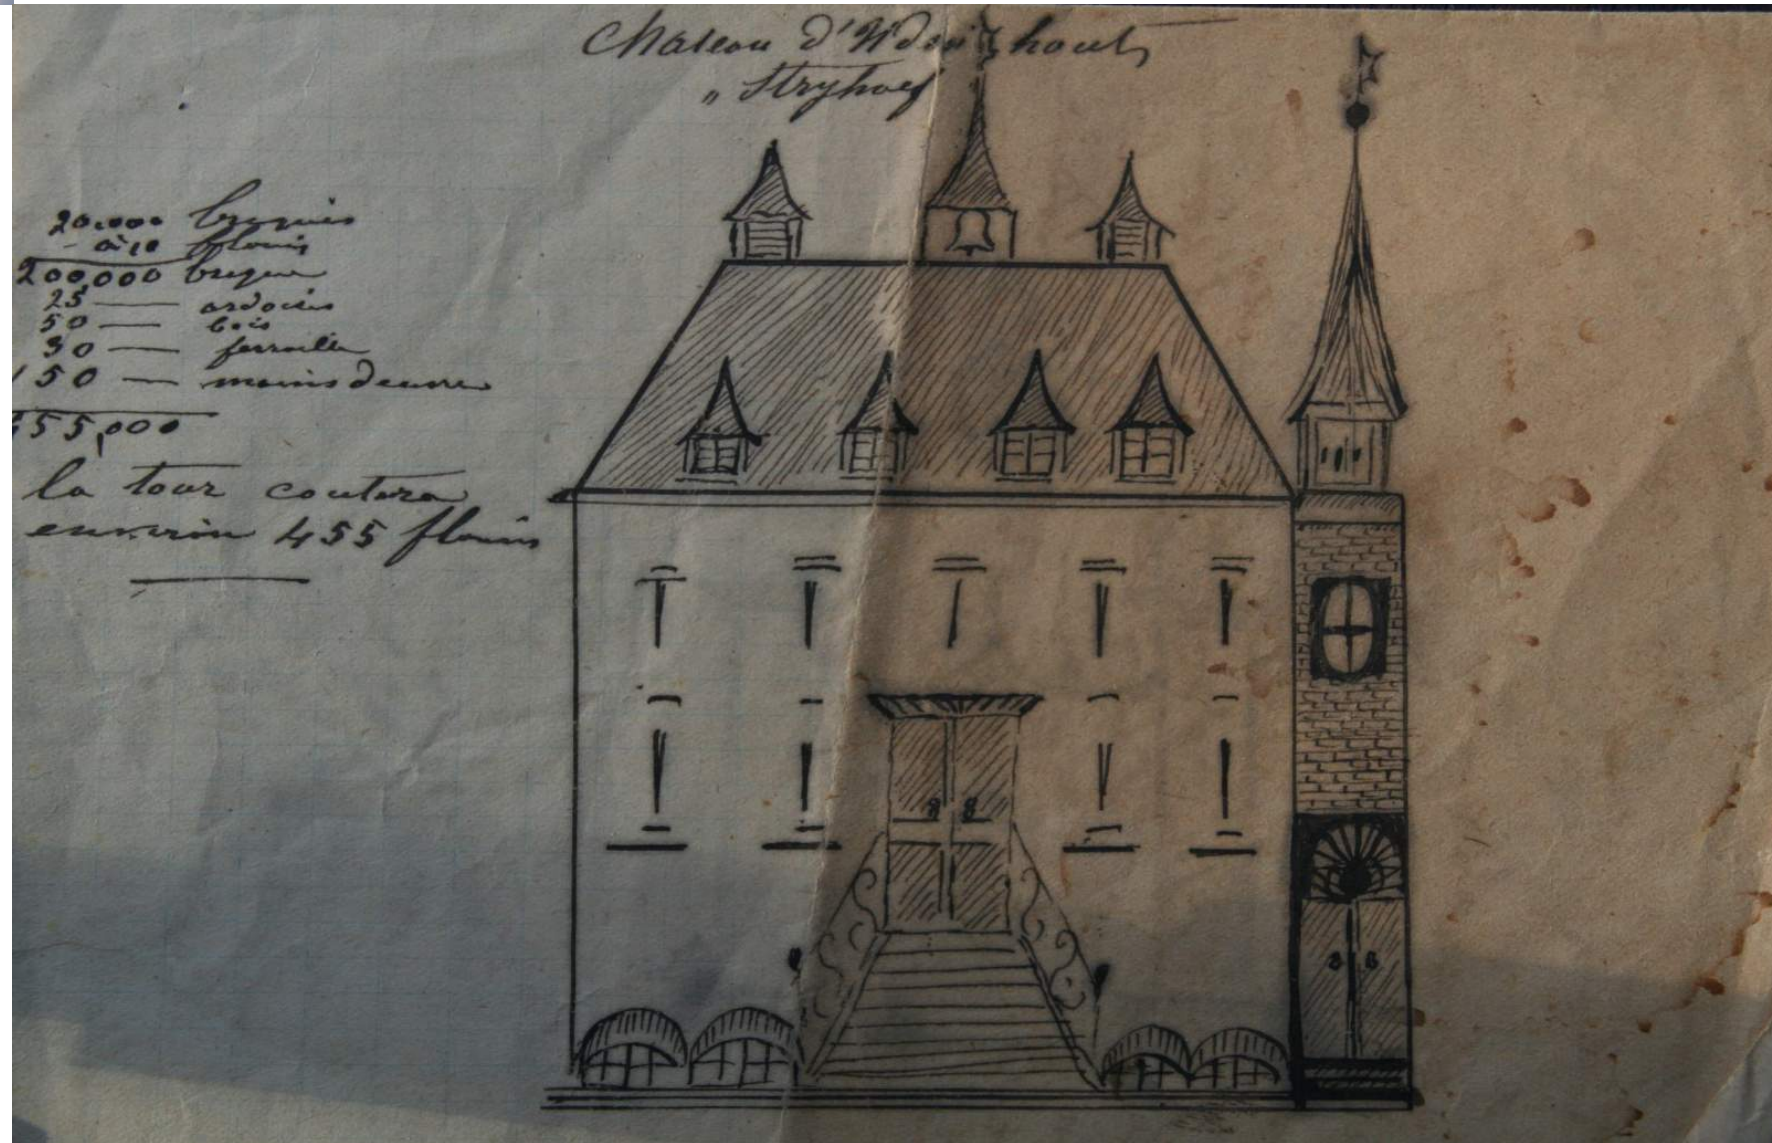 Chateau d'Udenhout
„ Stryhoef
20.000 briques
à 10 florins
200,000 briques
25 — ardoises
50 — bois
30 — ferraille
150 — mains d'euvre
455,000
la tour coutera
environ 455 florins